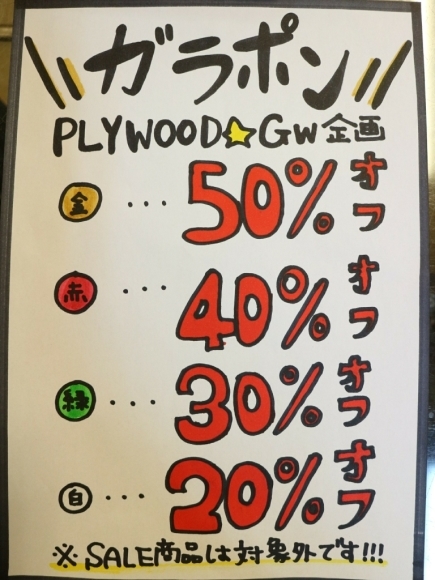 ガラポン
PLYWOOD☆GW企画
金…50%オフ
赤…40%オフ
緑…30%オフ
白…20%オフ
※SALE商品は対象外です!!!